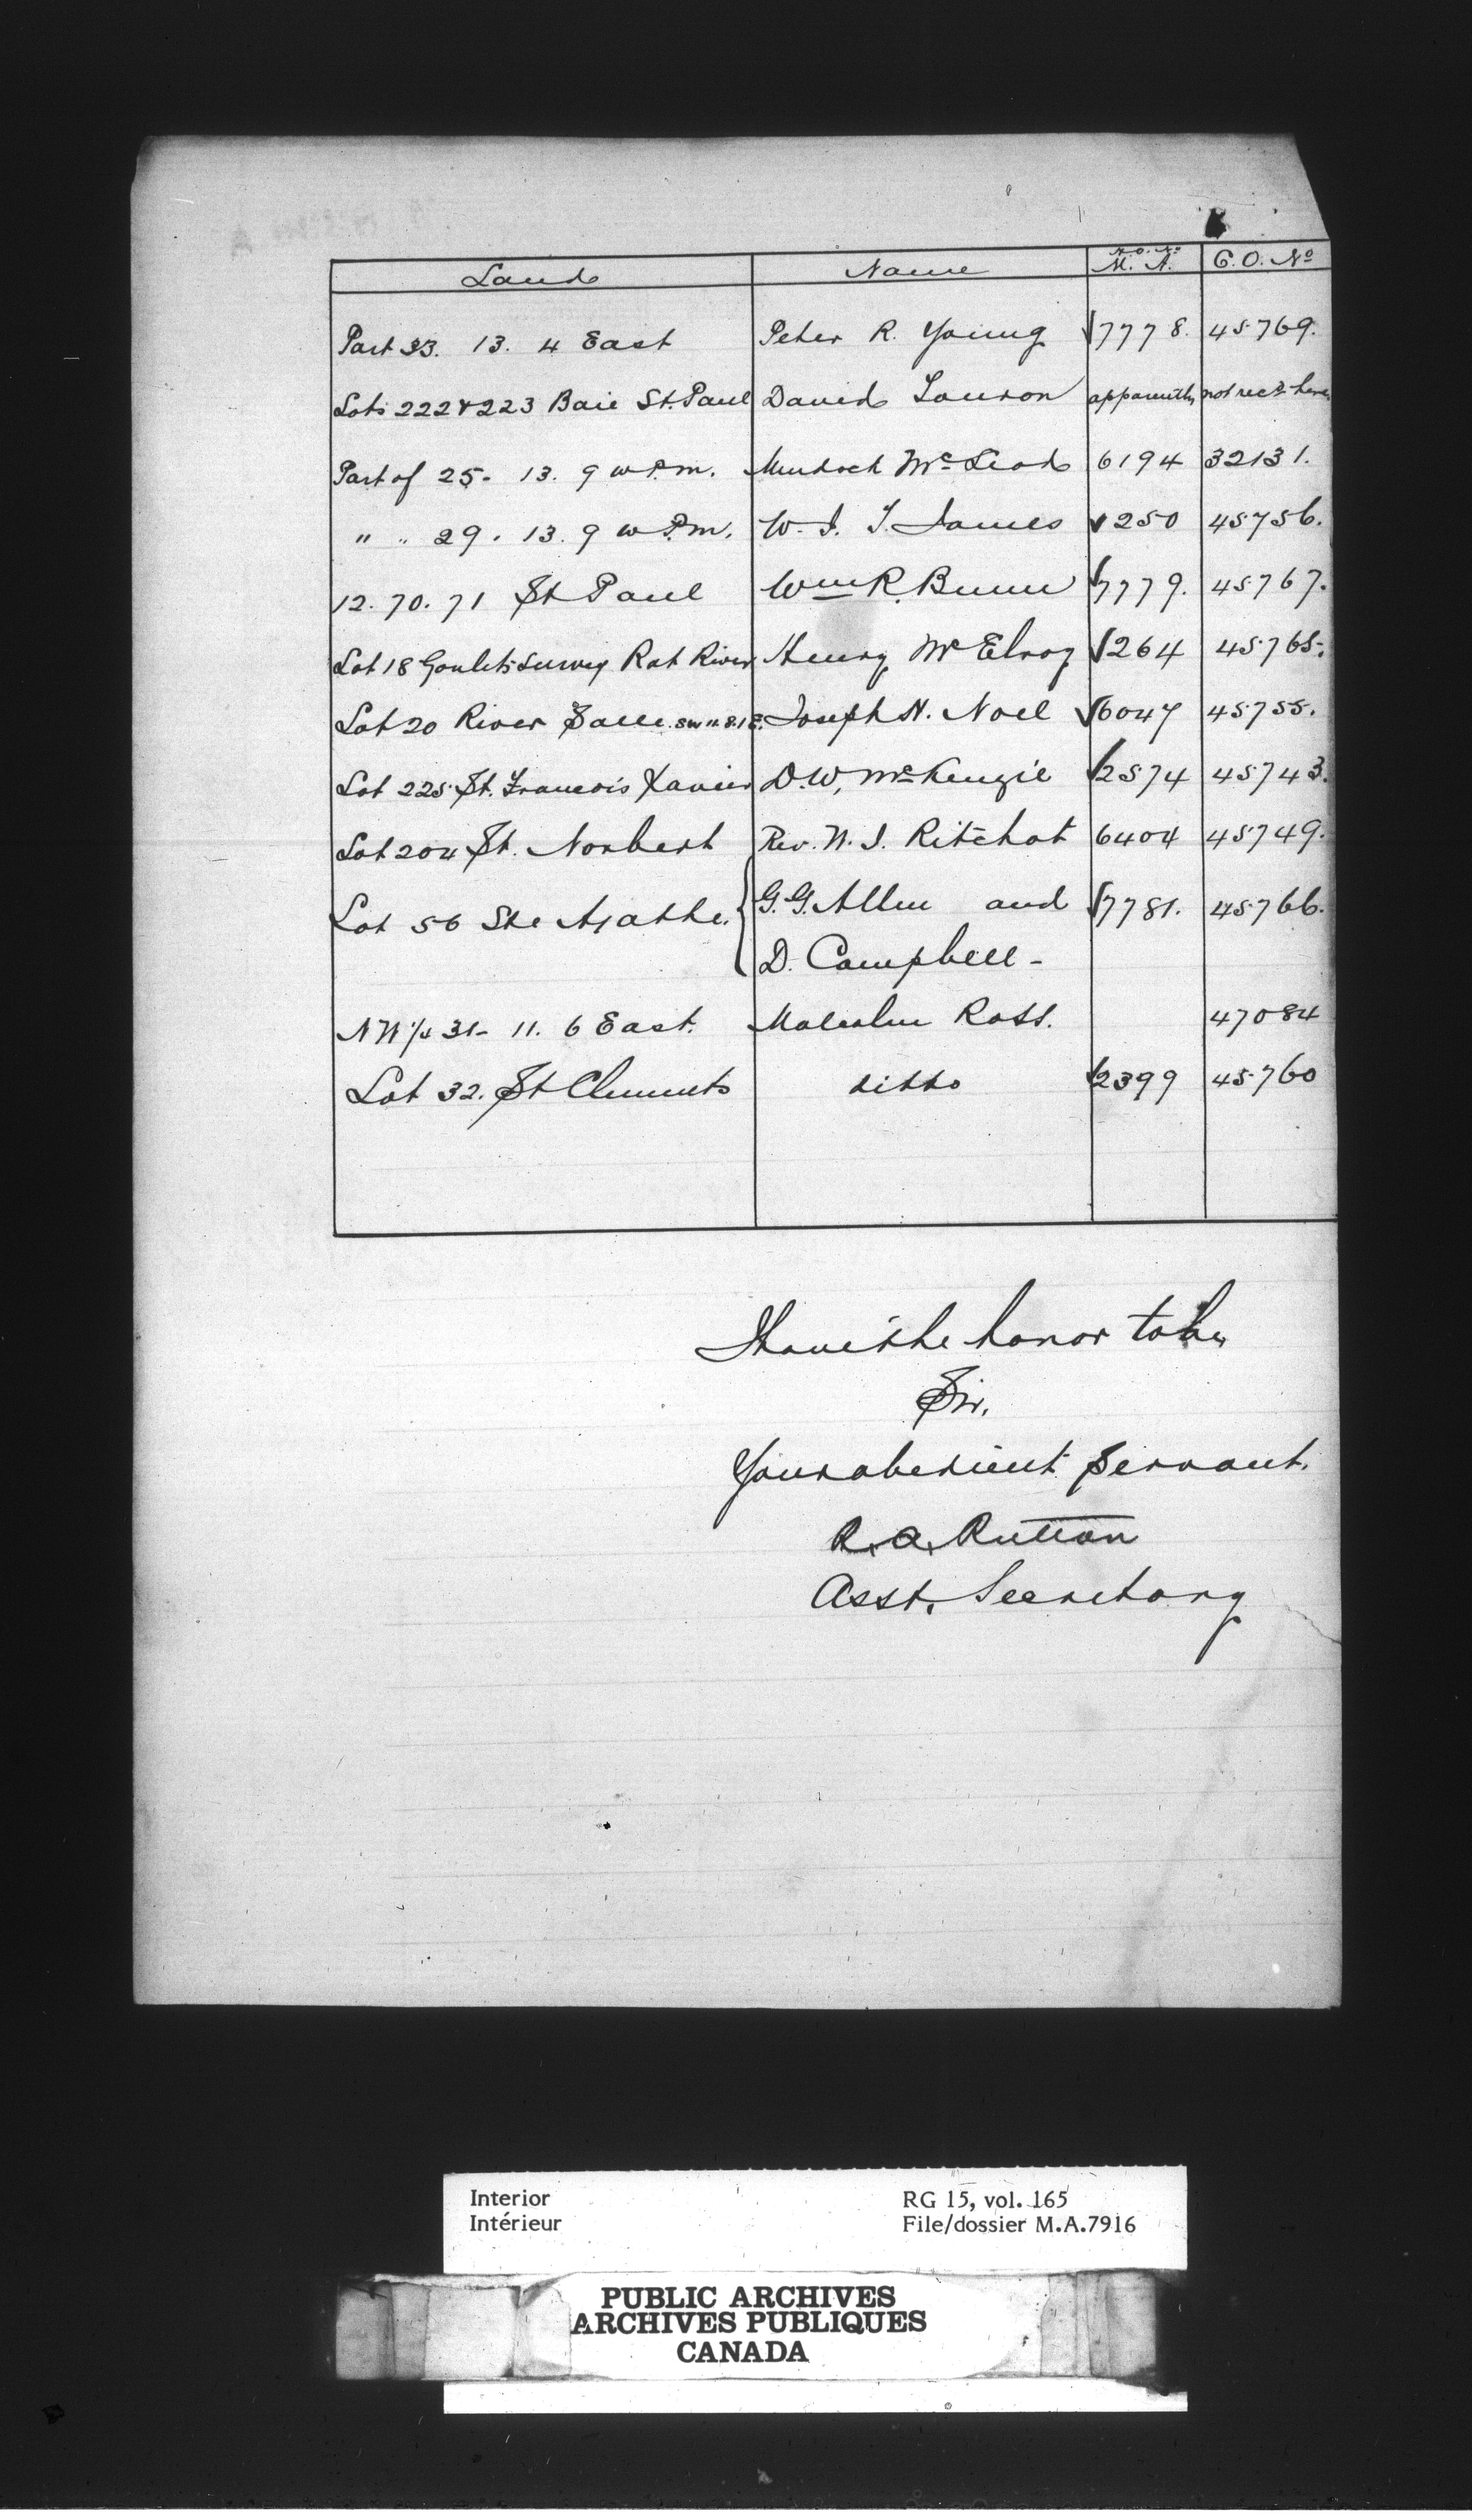 Land Name H.O. No M. A. G. O. No
Part 33. 13. 4 East Peter R. Young √7778. 45769.
Lots 222 & 223 Baie St. Paul David Louson apparently not recd here
Part of 25- 13. 9 W P.M. Murdoch McLeod 6194 32131.
" " 29. 13. 9 W P.M. W. J. T. James √250 45756.
12. 70. 71 St Paul Wm R. Bunn √7779. 45767.
Lot 18 Goulet's Survey Rat River Henry McElroy √264 45765.
Lot 20 River Salle. SW 11.8.1 E. Joseph N. Noel √6047 45755.
Lot 225 St. Francois Xavier D. W. McKenzie √2574 45743.
Lot 204 St. Norbert Rev. N. J. Ritchot 6404 45749.
Lot 56 Ste Agathe. G. G. Allen and √7781. 45766.
D. Campbell -
NW 1/4 31- 11. 6 East. Malcolm Ross. 47084
Lot 32. St Clements ditto √2399 45760
I have the honor to be,
Sir,
Your obedient Servant.
R. A. Ruttan
Asst. Secretary
Interior RG 15, vol. 165
Intérieur File/dossier M.A.7916
PUBLIC ARCHIVES
ARCHIVES PUBLIQUES
CANADA